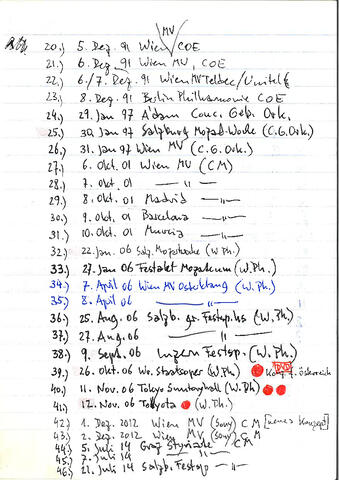 MV
20.) 5. Dez. 91 Wien COE
21.) 6. Dez. 91 Wien MV, COE
22.) 6./7. Dez. 91 Wien MV Teldec/Unitel
23.) 8. Dez. 91 Berlin Philharmonie COE
24.) 29. Jan 97 A'dam Conc. Geb. Ork.
25.) 30. Jan 97 Salzburg Mozart-Woche (C.G.Ork.)
26.) 31. Jan 97 Wien MV (C.G. Ork.)
27.) 6. Okt. 01 Wien MV (CM)
28.) 7. Okt. 01 —"—
29.) 8. Okt. 01 Madrid —"—
30.) 9. Okt. 01 Barcelona —"—
31.) 10. Okt. 01 Murcia —"—
32.) 22. Jan. 06 Salz. Mozartwoche (W.Ph.)
33.) 27. Jan 06 Festakt Mozarteum (W.Ph.)
34.) 7. April 06 Wien MV Osterklang (W.Ph.)
35.) 8. April 06 —"—
36.) 25. Aug. 06 Salzb. gr. Festsp.hs (W.Ph.)
37.) 27. Aug. 06 —"—
38.) 9. Sept. 06 Luzern Festsp. (W.Ph.)
39.) 26. Okt. 06 Wr. Staatsoper (W.Ph.) Österreich
40.) 11. Nov. 06 Tokyo Suntoryhall (W.Ph)
41.) 12. Nov. 06 Toyota (W.Ph.)
42.) 1. Dez. 2012 Wien MV (Sony) CM [neues Konzept]
43.) 2. Dez. 2012 Wien MV (Sony) CM
44.) 5. Juli 14 Graz Styriarte CM
45.) 7. Juli 14 —"—
46.) 21. Juli 14 Salzb. Festsp —"—